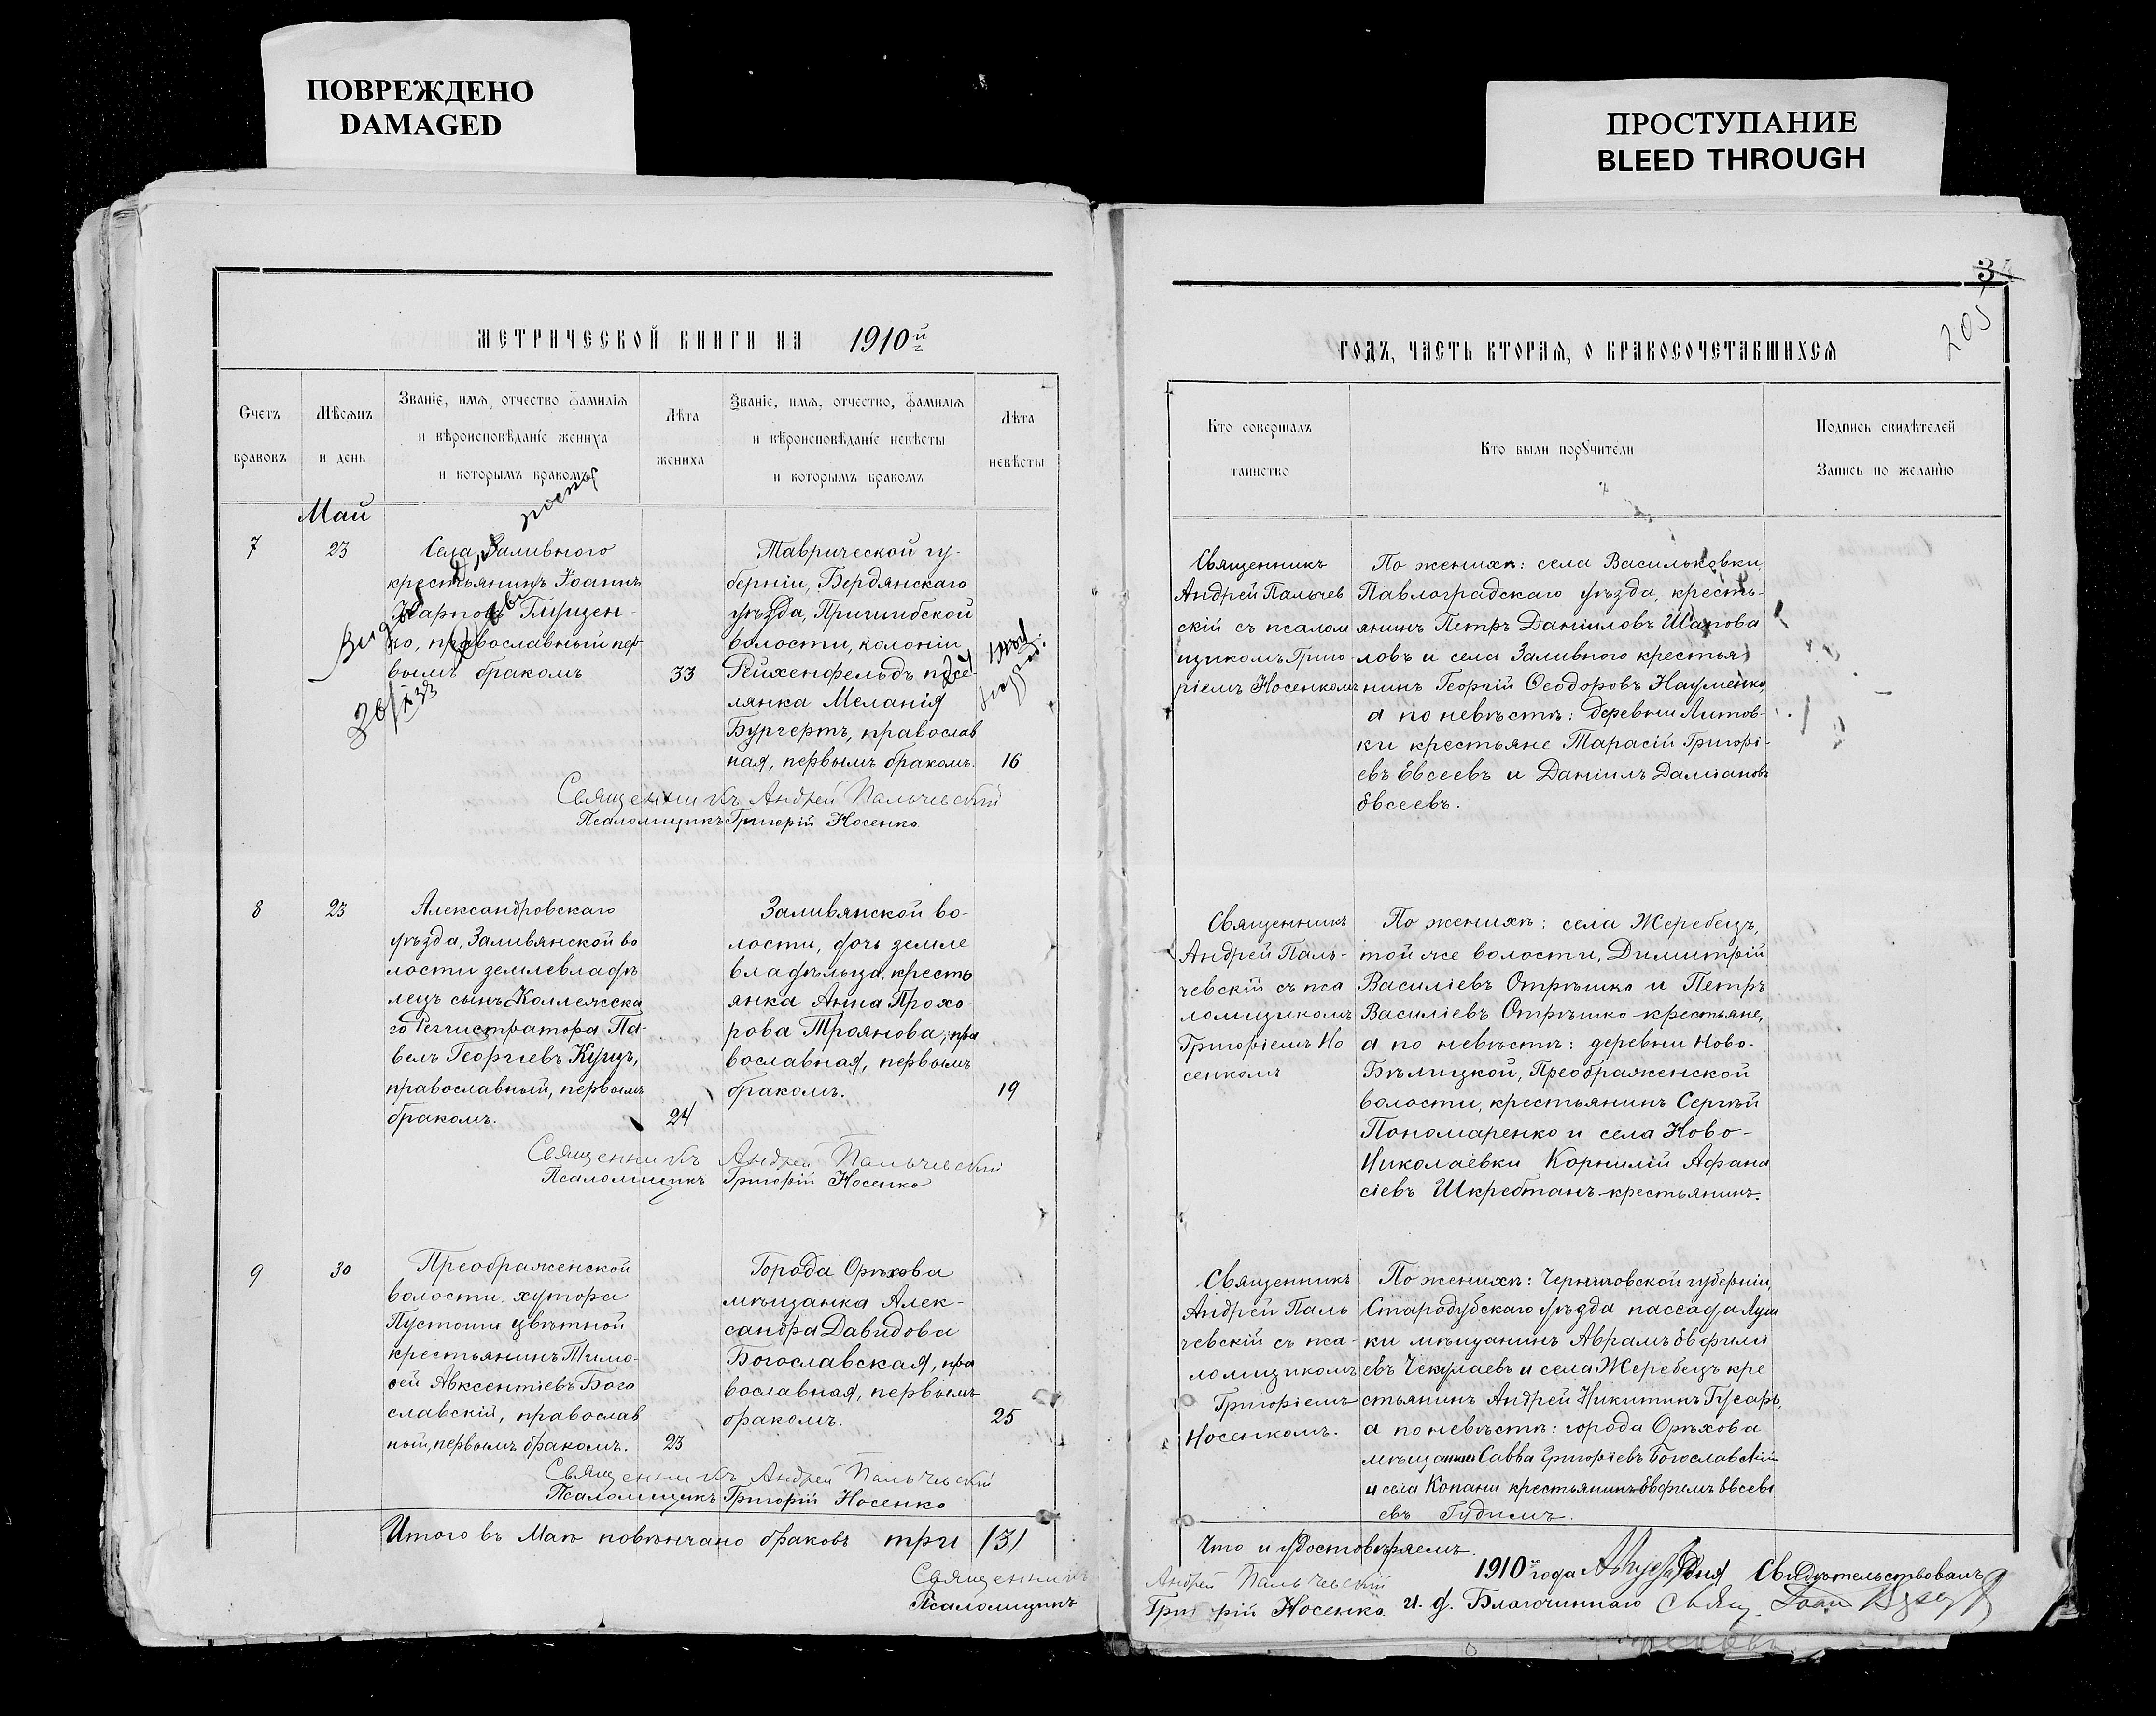 ПОВРЕЖДЕНО
DAMAGED
ПРОСТУПАНИЕ
BLEED THROUGH
МЕТРИЧЕСКОЙ КНИГИ НА 1910й
Счетъ браковъ
Мѣсяцъ и день
Званіе, имя, отчество фамилія
и вѣроисповѣданіе жениха
и которымъ бракомъ
Лѣта жениха
Званіе, имя, отчество, фамилія
и вѣроисповѣданіе невѣсты
и которымъ бракомъ
Лѣта невѣсты
Май
7
23
Села Заливного
крестьянинъ Іоаннъ
Карповъ Глущен-
ко, православный пер
вымъ бракомъ
33
Таврической гу-
берніи, Бердянскаго
уѣзда, Пришибской
волости, колоніи
Рейхенфельдъ посе
лянка Меланія
Бургертъ, православ
ная, первымъ бракомъ.
16
Священникъ Андрей Пальчевскій
Псаломщикъ Григорій Носенко.
8
23
Александровскаго
уѣзда, Заливянской во
лости землевладѣ
лецъ сынъ Коллежска
го Регистратора Па-
велъ Георгіевъ Кущъ,
православный, первымъ
бракомъ.
24
Заливянской во-
лости, дочь земле
владѣльца, кресть
янка Анна Прохо-
рова Троянова, пра
вославная, первымъ
бракомъ.
19
Священникъ Андрей Пальчевскій
Псаломщикъ Григорій Носенко
9
30
Преображенской
волости хутора
Пустоши цвѣтной
крестьянинъ Тимо-
ѳей Авксентіевъ Бого
славскій, православ
ный, первымъ бракомъ.
23
Города Орѣхова
мѣщанка Алек-
сандра Давидова
Богославская, пра
вославная, первымъ
бракомъ.
25
Священникъ Андрей Пальчевскій
Псаломщикъ Григорій Носенко
Итого въ Маѣ повѣнчано браковъ три /3/
Священникъ
Псаломщикъ
34
205
ГОДЪ, ЧАСТЬ ВТОРАЯ, О БРАКОСОЧЕТАВШИХСЯ
Кто совершалъ таинство
Кто были поручители
Подпись свидѣтелей
Запись по желанію
Священникъ
Андрей Пальчев
скій съ псалом
щикомъ Григо
ріемъ Носенкомъ
По женихѣ: села Васильковки
Павлоградскаго уѣзда, кресть-
янинъ Петръ Даніиловъ Шапова
ловъ и села Заливного крестья
нинъ Георгій Ѳеодоровъ Науменко,
а по невѣстѣ: деревни Литов-
ки крестьяне Тарасій Григорі-
евъ Евсеевъ и Даніилъ Даміановъ
Евсеевъ.
Священникъ
Андрей Паль-
чевскій съ пса
ломщикомъ
Григоріемъ Но
сенкомъ
По женихѣ: села Жеребецъ,
той же волости, Димитрій
Василіевъ Отрѣшко и Петръ
Василіевъ Отрѣшко-крестьяне,
а по невѣстѣ: деревни Ново-
Бѣлицкой, Преображенской
волости, крестьянинъ Сергѣй
Пономаренко и села Ново-
Николаевки Корнилій Афана
сіевъ Шкребтанъ-крестьянинъ.
Священникъ
Андрей Паль
чевскій съ пса-
ломщикомъ
Григоріемъ
Носенкомъ.
По женихѣ: Черниговской губерніи,
Стародубскаго уѣзда пассада Луж
ки мѣщанинъ Аврамъ Евфимі
евъ Чекулаевъ и села Жеребецъ кре
стьянинъ Андрей Никитинъ Гусарь,
а по невѣстѣ: города Орѣхова
мѣщанинъ Савва Григоріевъ Богославскій
и села Копани крестьянинъ Евфимъ Евсеві
евъ Гудимъ.
Что и удостовѣряемъ.
Андрей Пальчевскій
Григорій Носенко.
1910 года дня Свидѣтельствовалъ
и. д. Благочиннаго Свящ.